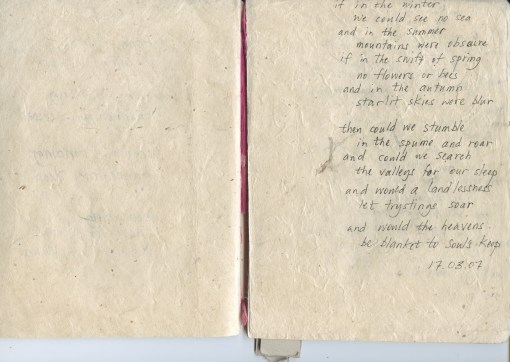 if in the winter
we could see no sea
and in the summer
mountains were obscure
if in the swift of spring
no flowers or bees
and in the autumn
starlit skies were blur
then could we stumble
in the spume and roar
and could we search
the valleys for our sleep
and would a landlessness
let trystings soar
and would the heavens
be blanket to souls keep
17.03.07